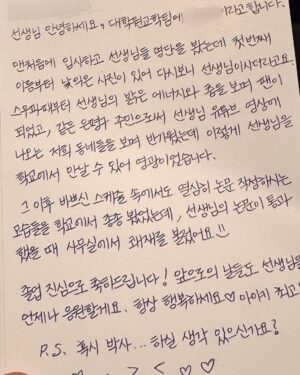 선생님 안녕하세요, 대학원교학팀에 이라고합니다.
맨처음에 입사하고 선생님들 명단을 봤는데 첫번째
이름부터 낯익은 사진이 있어 다시보니 선생님이시더라고요.
스우파때부터 선생님의 밝은 에너지와 춤을 보며 팬이
되었고, 같은 은평구 주민으로써 선생님 유튜브 영상에
나오는 저희 동네들을 보며 반가웠는데 이렇게 선생님을
학교에서 만날 수 있어 영광이었습니다.
그 이후 바쁘신 스케쥴 속에서도 열심히 논문 작성하시는
모습들을 학교에서 종종 봤었는데, 선생님의 논문이 통과
했을 때 사무실에서 쾌재를 불렀어요
졸업 진심으로 축하드립니다! 앞으로의 날들도 선생님을
언제나 응원할게요. 항상 행복하세요♡
P.S. 혹시 박사... 하실 생각 있으신가요?
♡ > < ♡ ♡